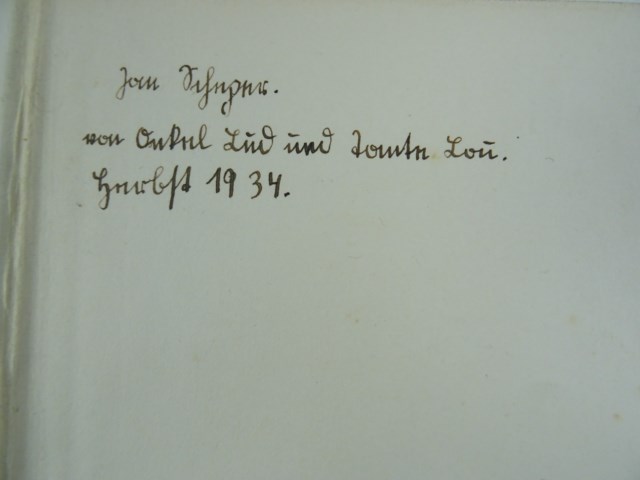 Jan Scheper.
von Onkel Lud und Tante Lou.
Herbst 1934.